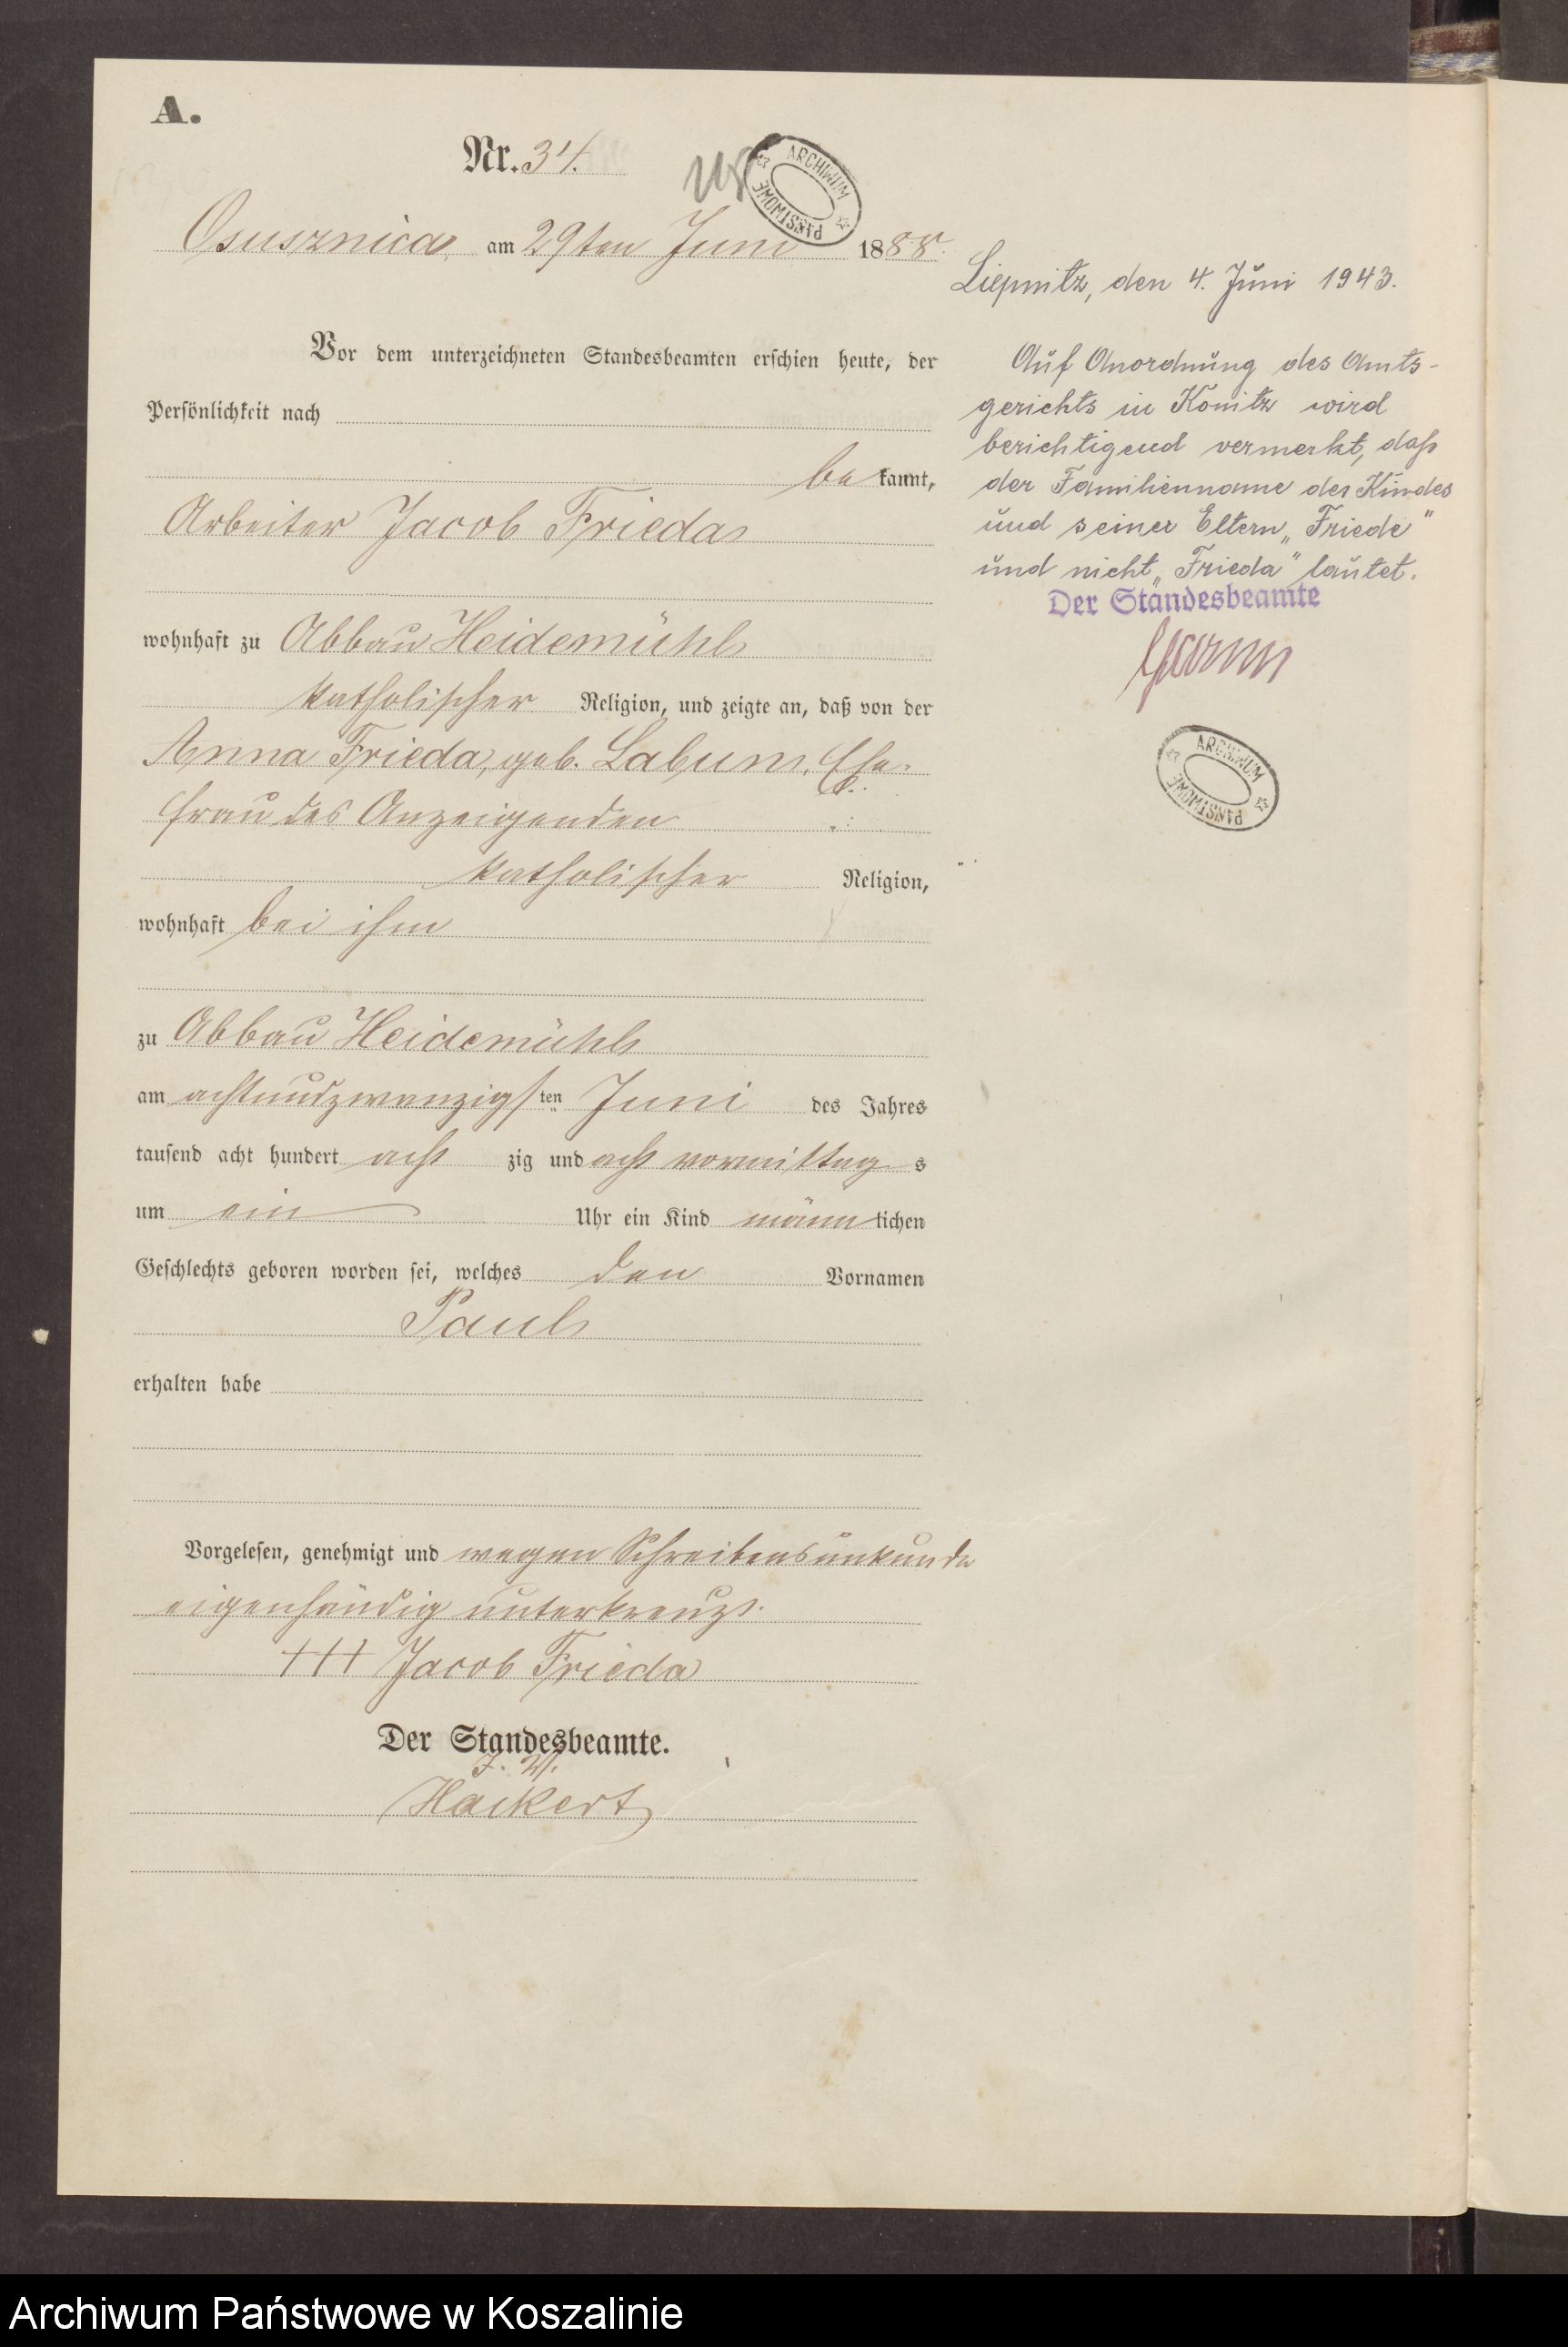 A.
Nr. 34.
ARCHIWUM PAŃSTWOWE
Osusznica, am 29ten Juni 1888.
Vor dem unterzeichneten Standesbeamten erschien heute, der
Persönlichkeit nach
be kannt,
Arbeiter Jacob Frieda
wohnhaft zu Abbau Heidemühl
katholischer Religion, und zeigte an, daß von der
Anna Frieda, geb. Labun, Ehe-
frau des Anzeigenden
katholischer Religion,
wohnhaft bei ihm
zu Abbau Heidemühl
am achtundzwanzigsten Juni des Jahres
tausend acht hundert acht zig und acht vormittag s
um ein Uhr ein Kind männ lichen
Geschlechts geboren worden sei, welches den Vornamen
Paul
erhalten habe
Vorgelesen, genehmigt und wegen Schreibensunkunde
eigenhändig unterkreuzt.
+++ Jacob Frieda
Der Standesbeamte.
J. V.
Hackert
Liepnitz, den 4. Juni 1943.
Auf Anordnung des Amts-
gerichts in Konitz wird
berichtigend vermerkt, daß
der Familienname des Kindes
und seiner Eltern „Friede"
und nicht „Frieda" lautet.
Der Standesbeamte
ARCHIWUM PAŃSTWOWE
Archiwum Państwowe w Koszalinie